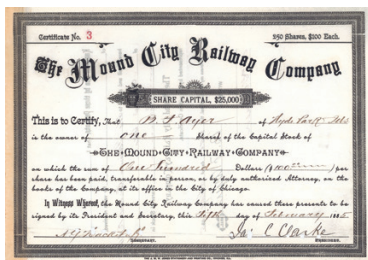 Certificate No. 3 250 Shares, $100 Each.
The Mound City Railway Company
SHARE CAPITAL, $25,000
This is to Certify, That of Hyde Park
is the owner of one Share of the Capital Stock of
THE MOUND CITY RAILWAY COMPANY
on which the sum of One Hundred Dollars per
share has been paid, transferable in person, or by duly authorized Attorney, on the
books of the Company, at its office in the City of Chicago.
In Witness Whereof, the Mound City Railway Company has caused these presents to be
signed by its President and Secretary, this fifth day of February 188
Jas. C. Clarke
SECRETARY. PRESIDENT.